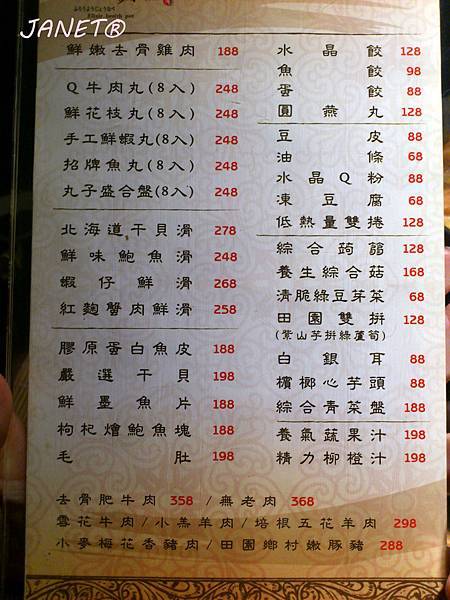 JANET®
Elixir health pot
鮮嫩去骨雞肉 188
Q牛肉丸(8入) 248
鮮花枝丸(8入) 248
手工鮮蝦丸(8入) 248
招牌魚丸(8入) 248
丸子盛合盤(8入) 248
北海道干貝滑 278
鮮味鮑魚滑 248
蝦仔鮮滑 268
紅麴蟹肉鮮滑 258
膠原蛋白魚皮 188
嚴選干貝 198
鮮墨魚片 188
枸杞燴鮑魚塊 188
毛肚 198
水晶餃 128
魚餃 98
蛋餃 88
圓燕丸 128
豆皮 88
油條 68
水晶Q粉 88
凍豆腐 68
低熱量雙捲 128
綜合蒟蒻 128
養生綜合菇 168
清脆綠豆芽菜 68
田園雙拼 128
(紫山芋拼綠蘆筍)
白銀耳 88
檳榔心芋頭 88
綜合青菜盤 188
養氣蔬果汁 198
精力柳橙汁 198
去骨肥牛肉 358 / 無老肉 368
雪花牛肉/小羔羊肉/培根五花羊肉 298
小麥梅花香豬肉/田園鄉村嫩豚豬 288